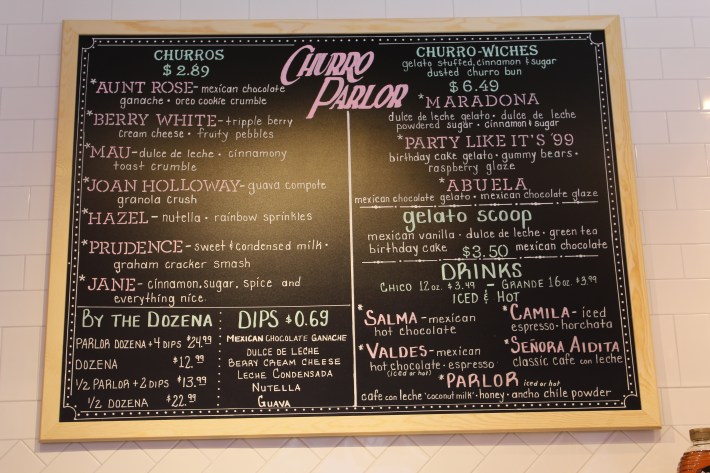 CHURROS
$2.89
*AUNT ROSE- mexican chocolate
ganache · oreo cookie crumble
*BERRY WHITE- tripple berry
cream cheese · fruity pebbles
*MAU- dulce de leche · cinnamony
toast crumble
*JOAN HOLLOWAY- guava compote
granola crush
*HAZEL - nutella · rainbow sprinkles
*PRUDENCE - sweet & condensed milk ·
graham cracker smash
*JANE - cinnamon, sugar, spice and
everything nice
BY THE DOZENA
PARLOR DOZENA + 4 DIPS $24.99
DOZENA $12.99
1/2 PARLOR + 2 DIPS $13.99
1/2 DOZENA $22.99
DIPS $0.69
MEXICAN CHOCOLATE GANACHE
DULCE DE LECHE
BERRY CREAM CHEESE
LECHE CONDENSADA
NUTELLA
GUAVA
CHURRO
PARLOR
CHURRO-WICHES
gelato stuffed, cinnamon & sugar
dusted churro bun
$6.49
*MARADONA
dulce de leche gelato · dulce de leche
powdered sugar · cinnamon & sugar
*PARTY LIKE IT'S '99
birthday cake gelato · gummy bears ·
raspberry glaze
*ABUELA
mexican chocolate gelato · mexican chocolate glaze
gelato scoop
mexican vanilla · dulce de leche · green tea
birthday cake $3.50 mexican chocolate
DRINKS
CHICO 12oz. $3.49 - GRANDE 16oz. $3.99
ICED & HOT
*SALMA - mexican
hot chocolate
*CAMILA- iced
espresso · horchata
*VALDES- mexican
hot chocolate · espresso
(iced or hot)
*SEÑORA AIDITA
classic cafe con leche
*PARLOR iced or hot
cafe con leche 'coconut milk' · honey · ancho chile powder